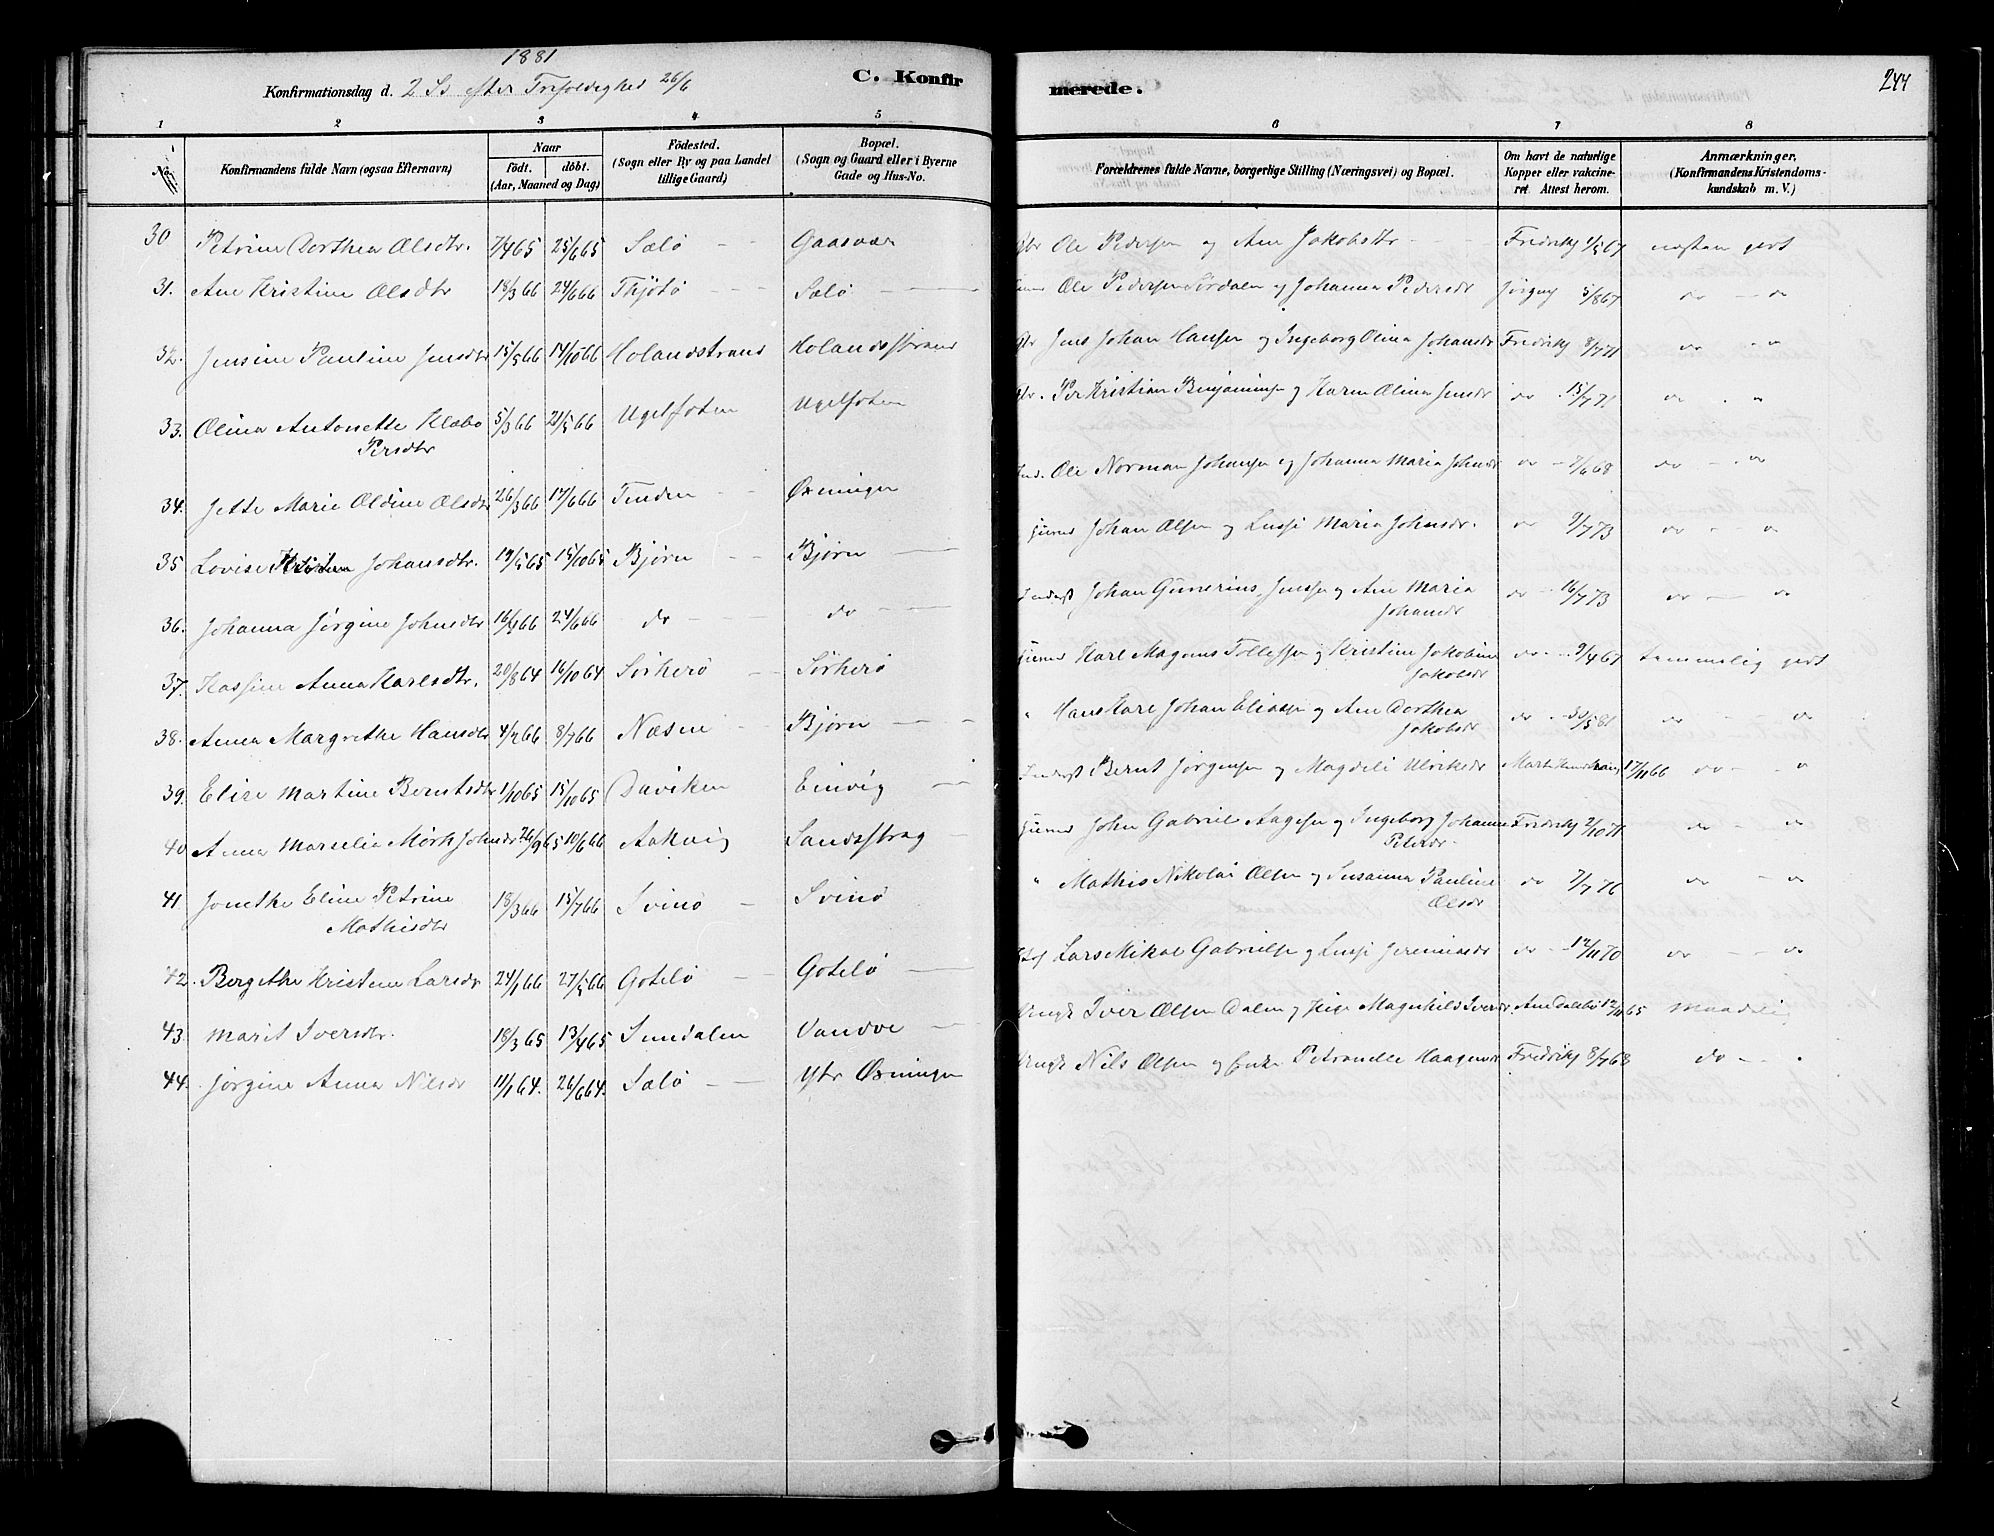 1881
Konfirmationsdag d. 2 Ss efter Trefoldighed 26/6
C. Konfir
merede.
244
1 2 3 4 5
6 7 8
No.
Konfirmandens fulde Navn (ogsaa Efternavn)
Naar
födt. döbt.
(Aar, Maaned og Dag)
Födested.
(Sogn eller By og paa Landet
tillige Gaard)
Bopæl.
(Sogn og Gaard eller i Byerne
Gade og Hus-No.
Forældrenes fulde Navne, borgerlige Stilling (Næringsvei) og Bopæl.
Om havt de naturlige
Kopper eller vakcine-
ret Attest herom.
Anmærkninger,
(Konfirmandens Kristendoms-
kundskab m. V.)
30 Petrine Dorthea Olsdtr. 7/4 65 25/6 65 Sælø Gaasvær Ole Pedersen og Ane Jakobsdtr Fredriks 1/5 67 næstan godt
31. Ane Kristine Olsdtr 18/3 66 24/6 66 Thjøtø Sælø Ole Pedersen Sørdalen og Johanna Pedersdr 5/8 67 do do
32. Jensine Pauline Jensdtr 15/5 66 14/10 66 Holandstrand Holandsstrand Jens Johan Hansen og Ingeborg Olina Johansdr Fredriks 8/7 71 do "
33. Olina Antonette Klæbo
Persdtr 5/3 66 21/5 66 Ugelfoten Ugelfoten Per Kristian Benjaminsen og Karen Olina Jensdr do 15/7 71
34. Jette Marie Oldine Olsdtr 26/3 66 17/6 66 Tenden Øxningen Ole Norman Johansen og Johanna Maria Johnsdr do 7/6 68 do
35 Lovise Johansdtr. 19/5 65 15/10 65 Bjørn Bjørn Johan Olsen og Lussi Maria Johnsdr. do 9/7 73 do
36. Johanna Jørgine Johnsdtr 24/6 66 do do Johan Gunerius Jensen og Ane Maria
Johansdr do 16/7 73 do
37. Kassine Anna Karlsdtr. 20/8 64 16/10 64 Sørherø Sørherø Karl Magnus Tollefsen og Kristine Jakobine
Jakobsdr do 9/4 67 temmelig godt
38. Anna Margrethe Hansdtr 4/2 66 8/7 66 Næsne Bjørn " Hans Johan Eliasen og Ane Dorthea
Jakobsdr do 30/5 81 do do
39. Elise Martine Berntsdtr 1/10 65 15/10 65 Daviken Einvig Bernt Jørgensen og Magdeli Ulrikedr 17/11 66 do
40 Anna Marselia Mørk Johnsdr. 26/9 65 10/6 66 Aakvig Sandsstrag John Gabriel Aagesen og Ingeborg Johanne
Petersdr. Fredriks 2/10 71 do do
41. Jonethe Eline Petrine
Mathisdtr 18/3 66 15/7 66 Svinø Svinø " Mathis Nikolai Olsen og Susanna Pauline
Olsdr do 7/7 76 do do
42. Bergithe Kristine Larsdr 24/1 66 27/5 66 Gotelø Gotelø Lars Mikal Gabrielsen og Lussi Jeremiasdr do 12/11 70 do do
43. Marit Iversdtr. 18/3 65 13/4 65 Sundalen Vandve Iver Olsen Dalen og Magnhild Iversdr 12/11 65 Maadelig
44. Jørgine Anna Nilsdr 11/1 64. 26/6 64. Sælø Ytr Øxningen Nils Olsen og Petranelle Haagensdr Fredriks 8/7 68 do